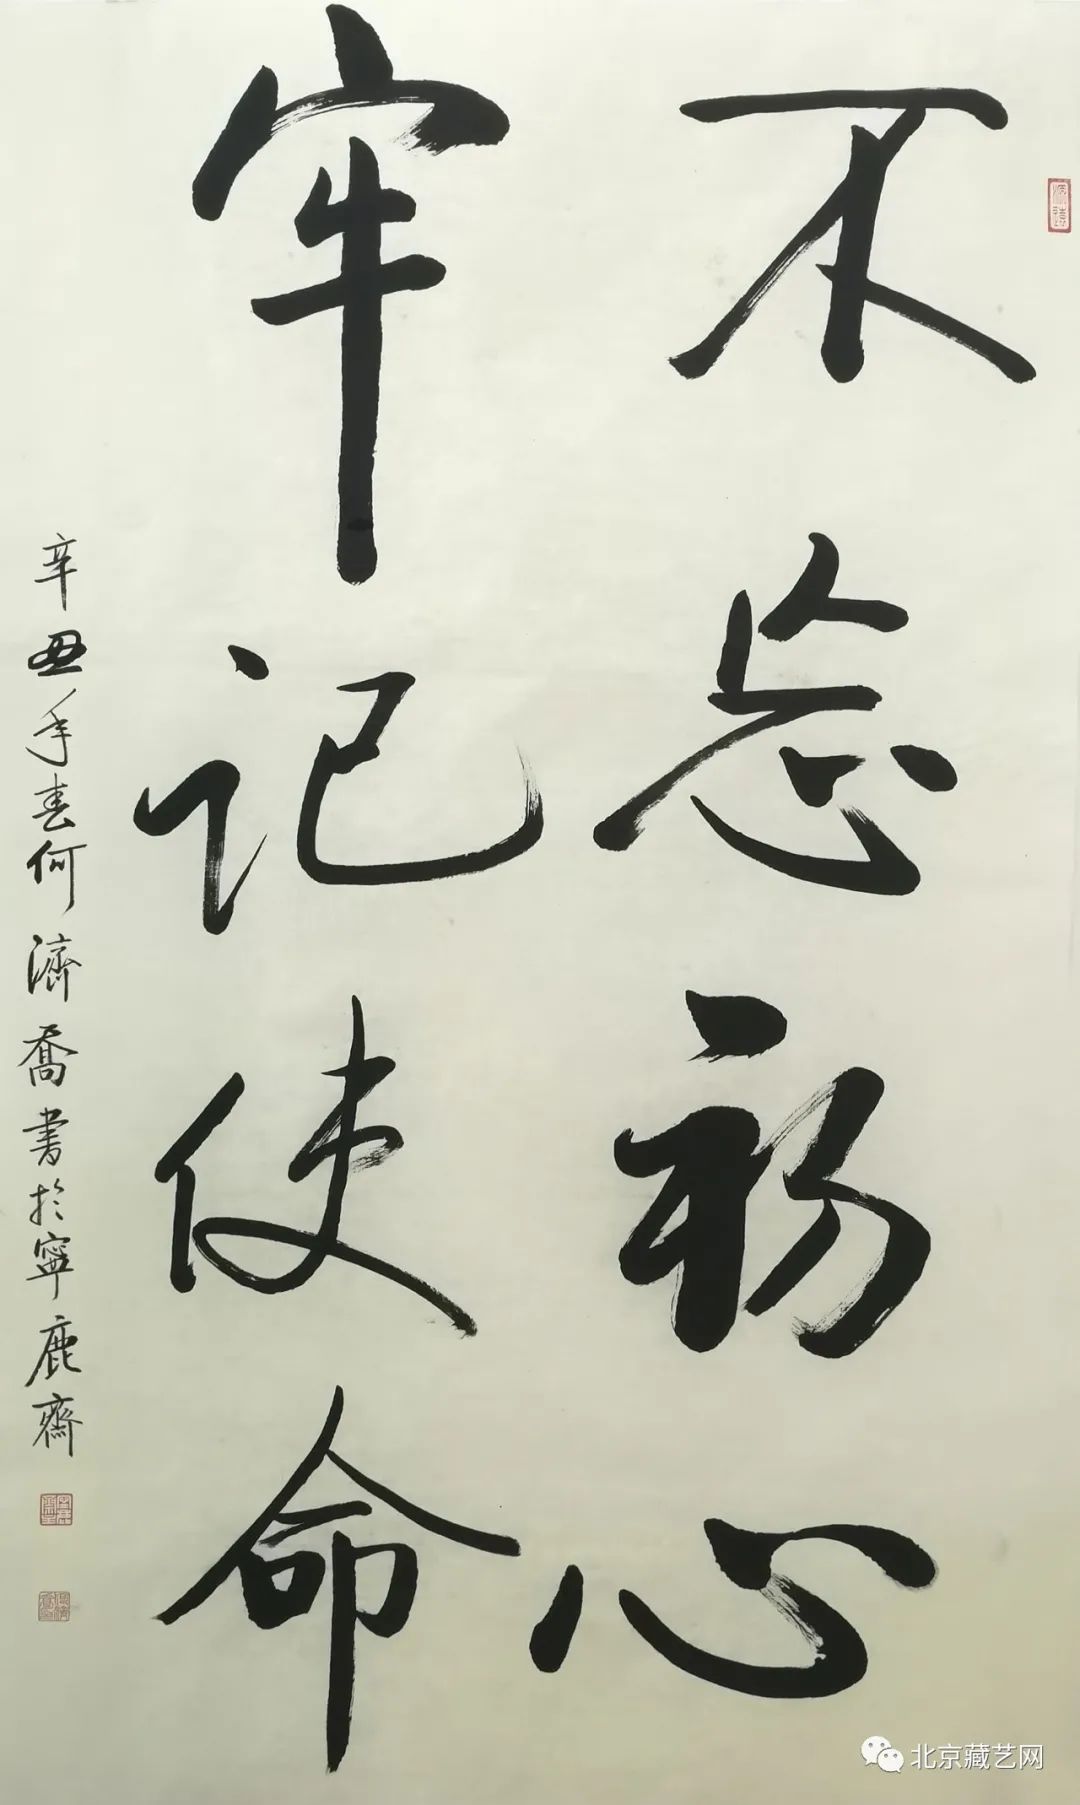 不忘初心
牢记使命
辛丑年春何濟喬書於寧鹿齋
北京藏艺网